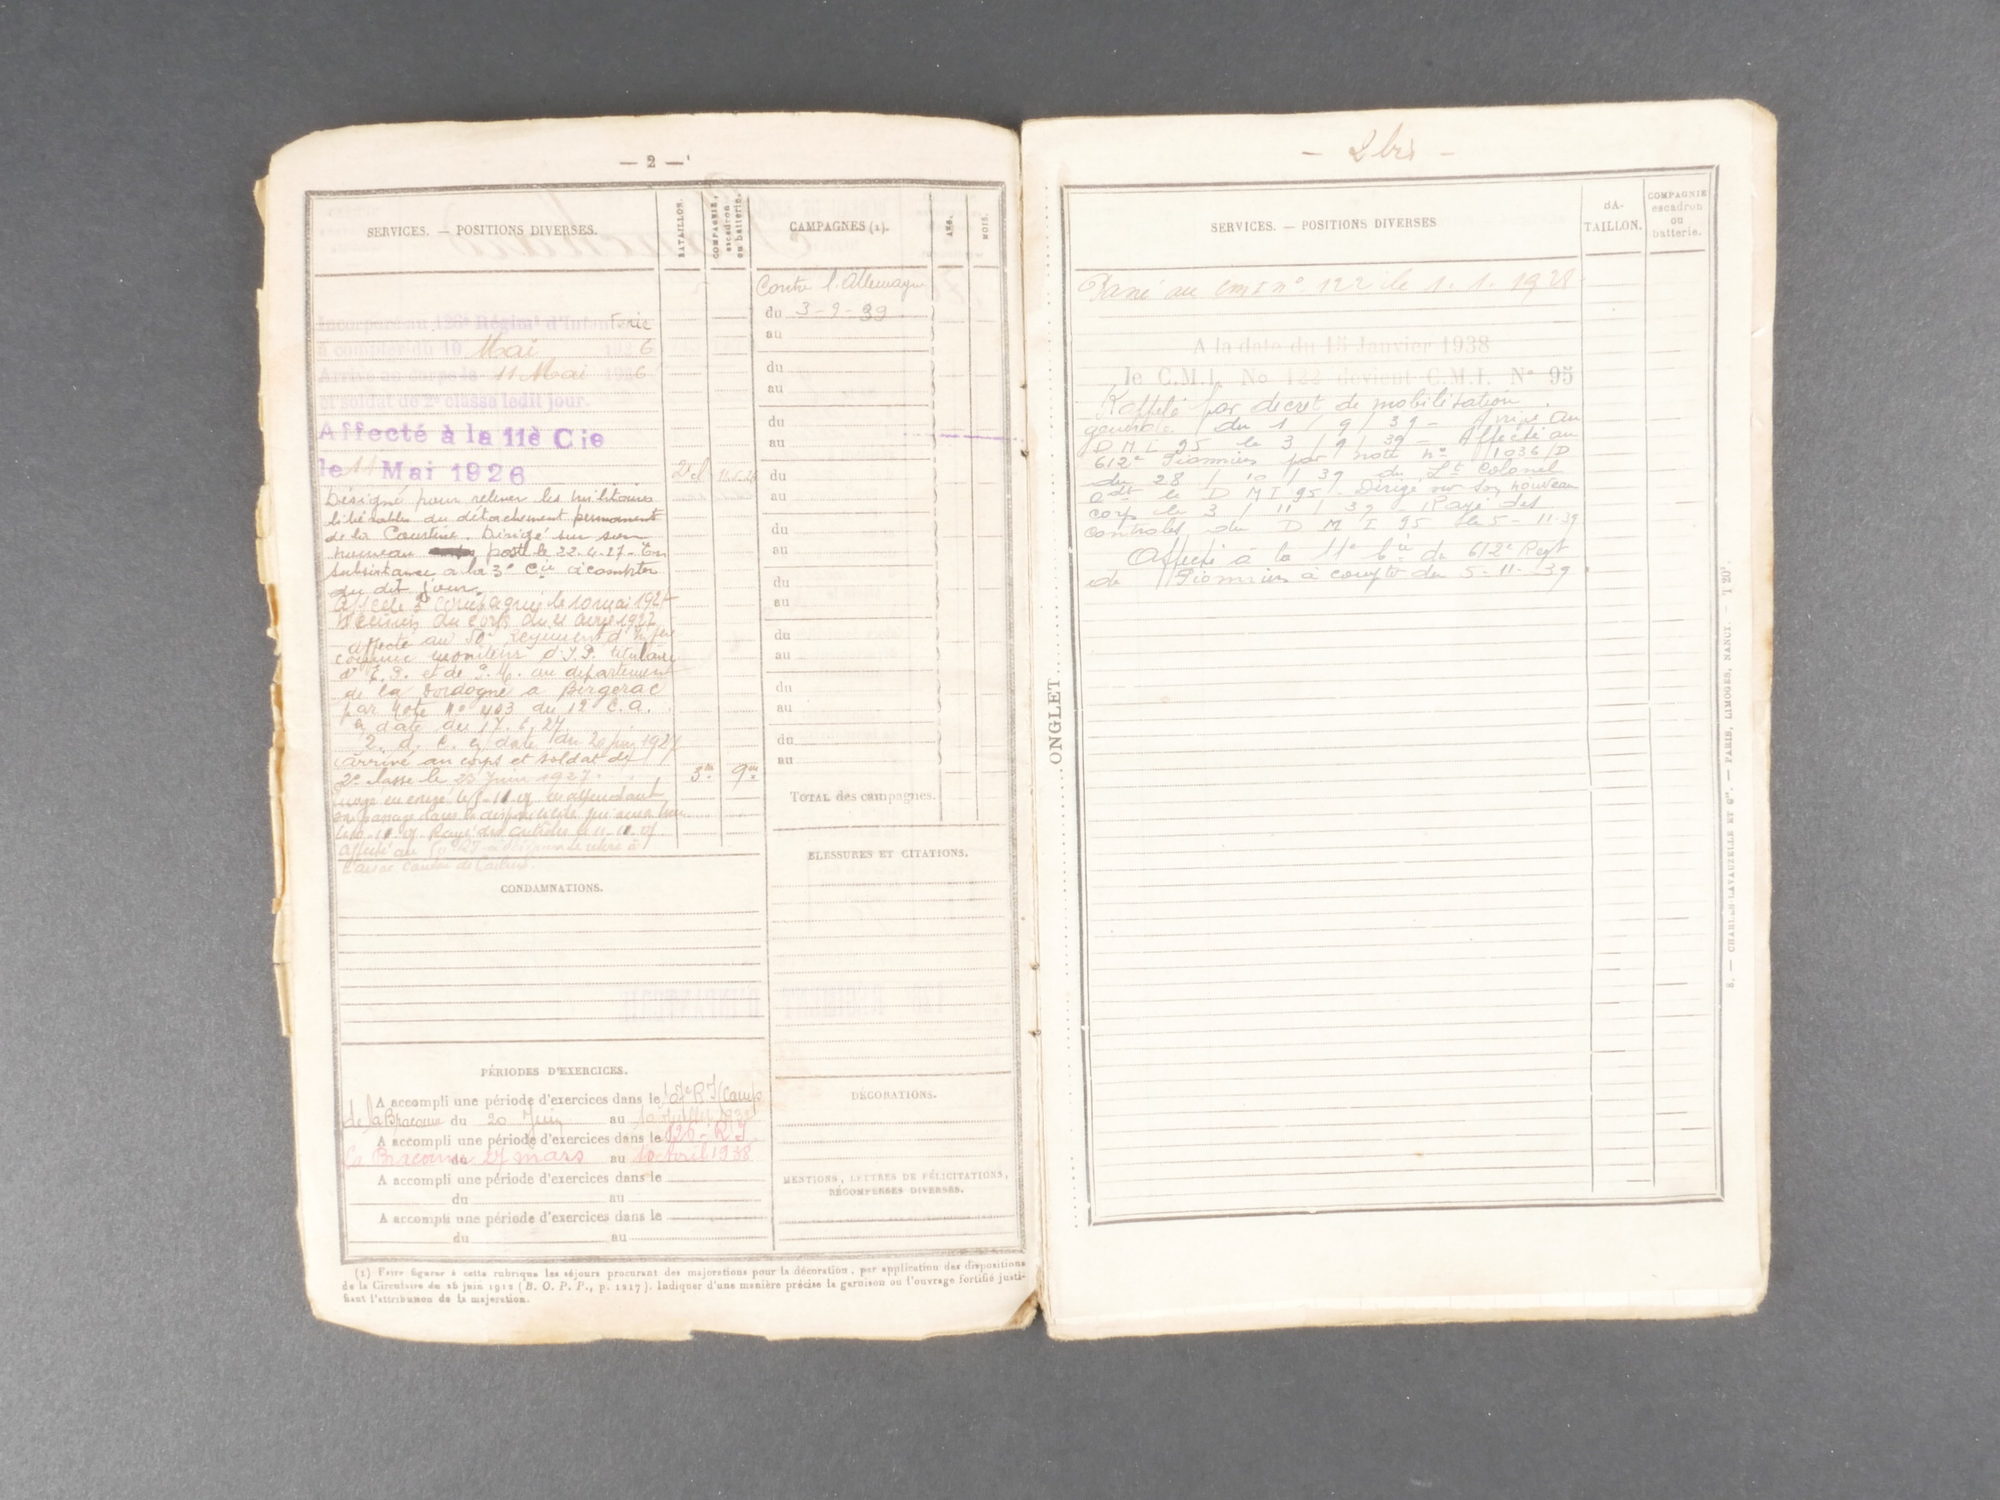 — 2 —
SERVICES. — POSITIONS DIVERSES.
BATAILLON.
COMPAGNIE,
escadron
ou batterie.
CAMPAGNES (1).
ANS.
MOIS.
Incorporé au 126e Régimt d'Infanterie
à compter du 10 Mai 1926
Arrivé au corps le 11 Mai 1926
et soldat de 2e classe ledit jour.
Affecté à la 11è Cie
le 11 Mai 1926
Désigné pour relever les militaires
libérables du détachement permanent
de la Courtine. Dirigé sur son
nouveau poste le 22.4.27. En
subsistance à la 3e Cie à compter
du dit jour.
Affecté 3e Compagnie le 10 mai 1927
du corps du 21 avril 1927
affecté au 50e regiment d'Infie
comme moniteur d'I.P. titulaire
d'E.P. et de P.M. au département
de la Dordogne a Bergerac
par Note No 403 du 12e C.A.
a date du 17.6.27
2. d. C. a date du 20 juin 1927
arrivé au corps et soldat de
2e classe le 23 juin 1927.
3e 9e
Rayé des contrôles le 11-10-27
Contre l'Allemagne
du 3-9-39
au
du
au
du
au
du
au
du
au
du
au
du
au
du
au
du
au
TOTAL des campagnes.
CONDAMNATIONS.
BLESSURES ET CITATIONS.
PÉRIODES D'EXERCICES.
A accompli une période d'exercices dans le 107e R I (Camp
de la Braconne du 20 Juin au 10 Juillet 1932
A accompli une période d'exercices dans le 126e R I
La Braconne du 27 mars au 10 Avril 1938
A accompli une période d'exercices dans le
du au
A accompli une période d'exercices dans le
du au
DÉCORATIONS.
MENTIONS, LETTRES DE FÉLICITATIONS,
RÉCOMPENSES DIVERSES.
(1) Faire figurer à cette rubrique les séjours procurant des majorations pour la décoration, par application des dispositions
de la Circulaire du 26 juin 1912 (B. O. P. P., p. 1217). Indiquer d'une manière précise la garnison ou l'ouvrage fortifié justi-
fiant l'attribution de la majoration.
— 2 bis —
SERVICES. — POSITIONS DIVERSES
BA-
TAILLON.
COMPAGNIE
escadron
ou
batterie.
Passé au CMI no 122 le 1.1.1928
A la date du 15 Janvier 1938
le C.M.I. No 122 devient C.M.I. No 95
Rappelé par décret de mobilisation
générale du 1/9/39 - Arrivé au
D M I 95 le 3/9/39 - Affecté au
612e Pionniers par note no 1036/D
du 28/10/39 du Lt Colonel
Cdt le D M I 95. Dirigé sur son nouveau
corp le 3/11/39 - Rayé des
controles du D M I 95 le 5-11-39
Affecté à la 11e Cie du 612e Regt
de Pionniers à compter du 5-11-39
ONGLET
8. — CHARLES-LAVAUZELLE ET Cie. — PARIS, LIMOGES, NANCY. — T 20°.